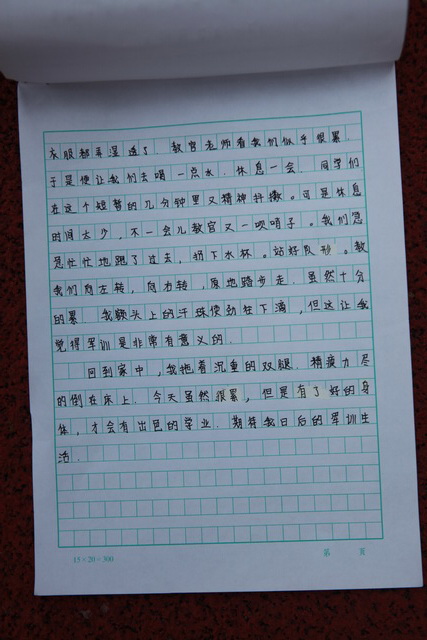 衣服都弄湿透了. 教官老师看我们似乎很累.
于是便让我们去喝一点水. 休息一会. 同学们
在这个短暂的几分钟里又精神抖擞。可是休息
时间太少, 不一会儿教官又一吹哨子。我们急
急忙忙地跑了过去, 扔下水杯。站好队形。教
我们向左转, 向右转, 原地踏步走. 虽然十分
的累. 我额头上的汗珠使劲往下滴, 但这让我
觉得军训是非常有意义的.
回到家中, 我拖着沉重的双腿. 精疲力尽
的倒在床上. 今天虽然很累, 但是有了好的身
体, 才会有出色的学业. 期待我日后的军训生
活.
15×20=300
第 页